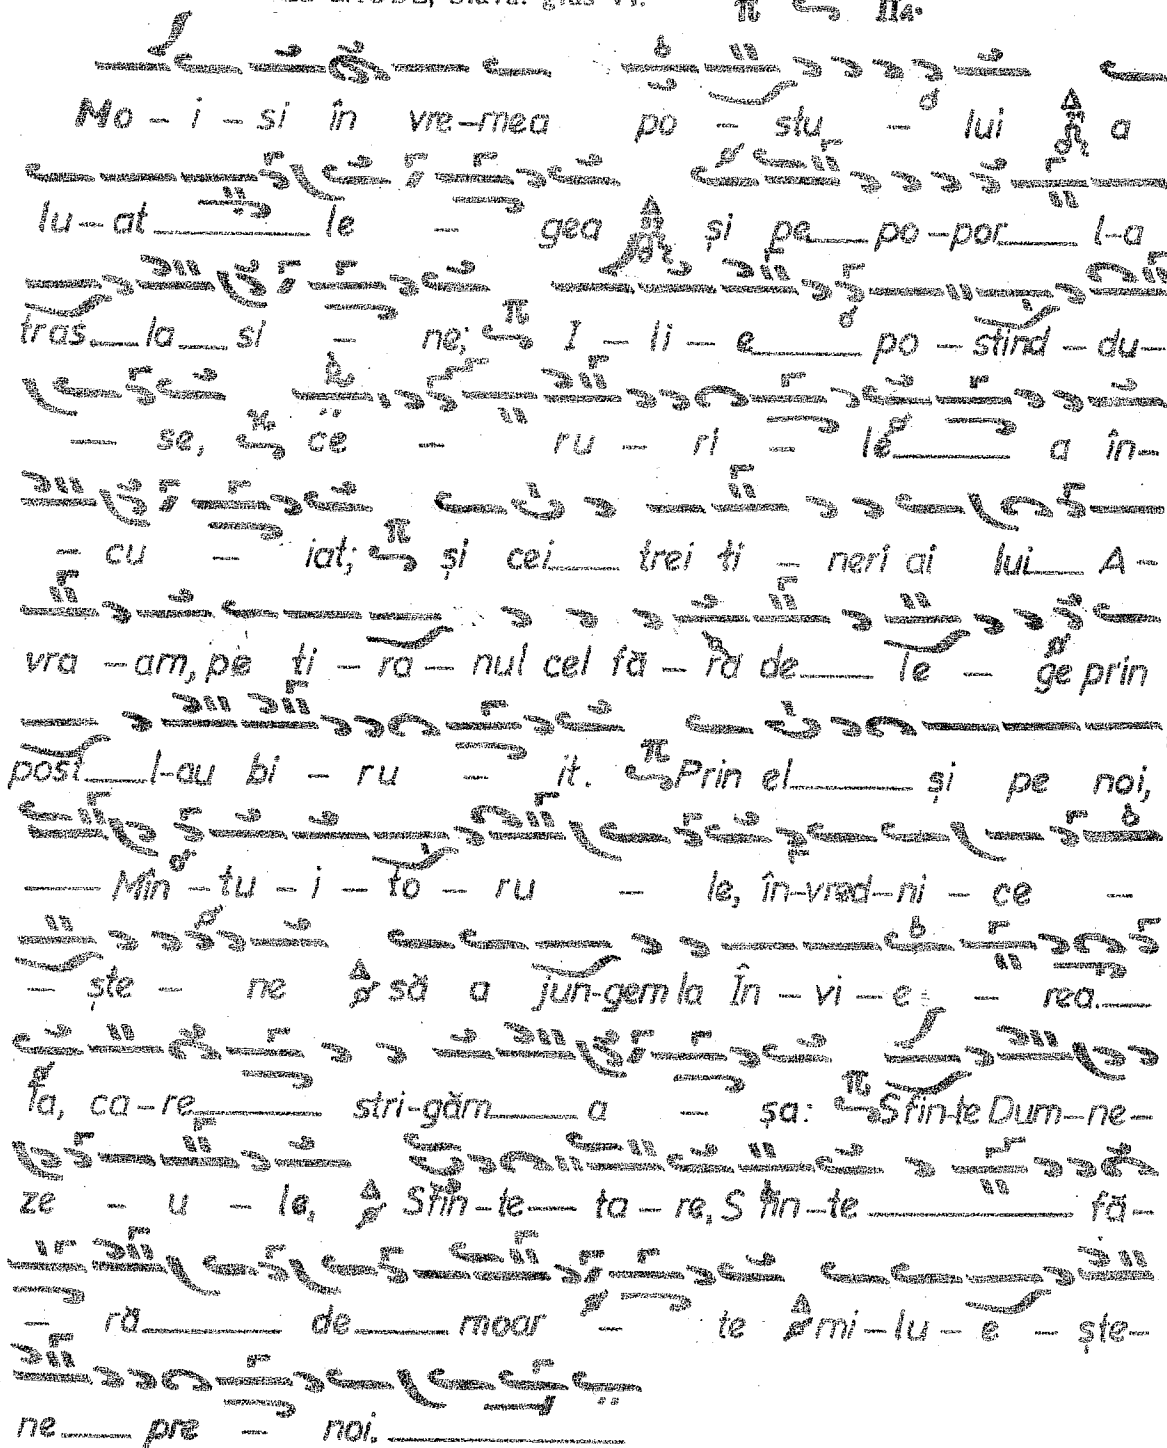 Mo - i - si în vre-mea po - stu - lui a
lu-at le - gea și pe po-por l-a
tras la si - ne; I - li - e po - stind - du-
- se, ce - ru - ri - le a în-
- cu - iat; și cei trei ti - neri ai lui A -
vra - am, pe ti - ra - nul cel fă - ră de le - ge prin
post l-au bi - ru - it. Prin el și pe noi,
Mîn - tu - i - to - ru - le, în-vred-ni - ce -
- ște - ne să a jun-gem la În - vi - e - rea
Ta, ca-re stri-găm a - șa: Sfin-te Dum-ne-
ze - u - le, Sfin-te ta-re, Sfin-te fă-
- ră de moar - te mi-lu - e - ște-
ne pre - noi.